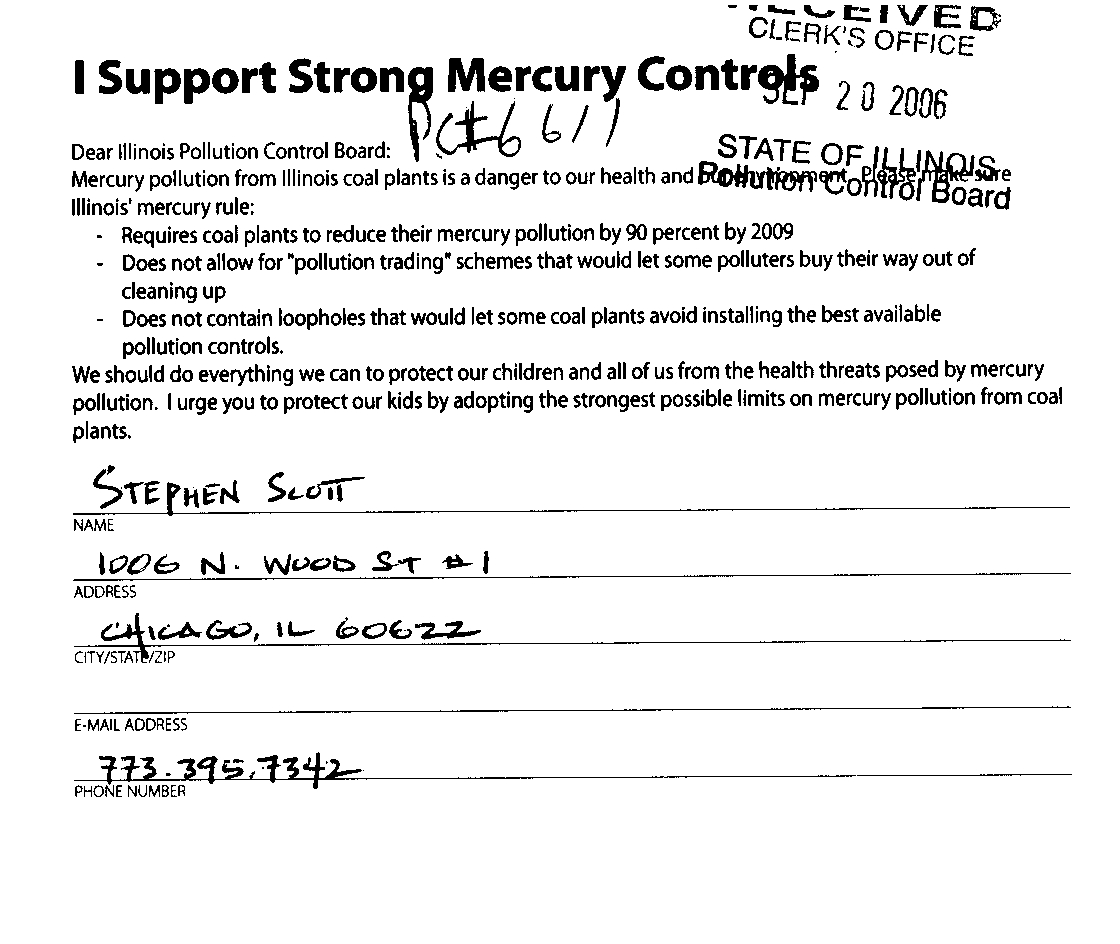 RECEIVED
CLERK'S OFFICE
I Support Strong Mercury Controls
SEP 20 2006
PC#6611
STATE OF ILLINOIS
Pollution Control Board
Dear Illinois Pollution Control Board:
Mercury pollution from Illinois coal plants is a danger to our health and our environment. Please make sure
Illinois' mercury rule:
- Requires coal plants to reduce their mercury pollution by 90 percent by 2009
- Does not allow for "pollution trading" schemes that would let some polluters buy their way out of
cleaning up
- Does not contain loopholes that would let some coal plants avoid installing the best available
pollution controls.
We should do everything we can to protect our children and all of us from the health threats posed by mercury
pollution. I urge you to protect our kids by adopting the strongest possible limits on mercury pollution from coal
plants.
STEPHEN SCOTT
NAME
1006 N. WOOD ST #1
ADDRESS
CHICAGO, IL 60622
CITY/STATE/ZIP
E-MAIL ADDRESS
773.395.7342
PHONE NUMBER